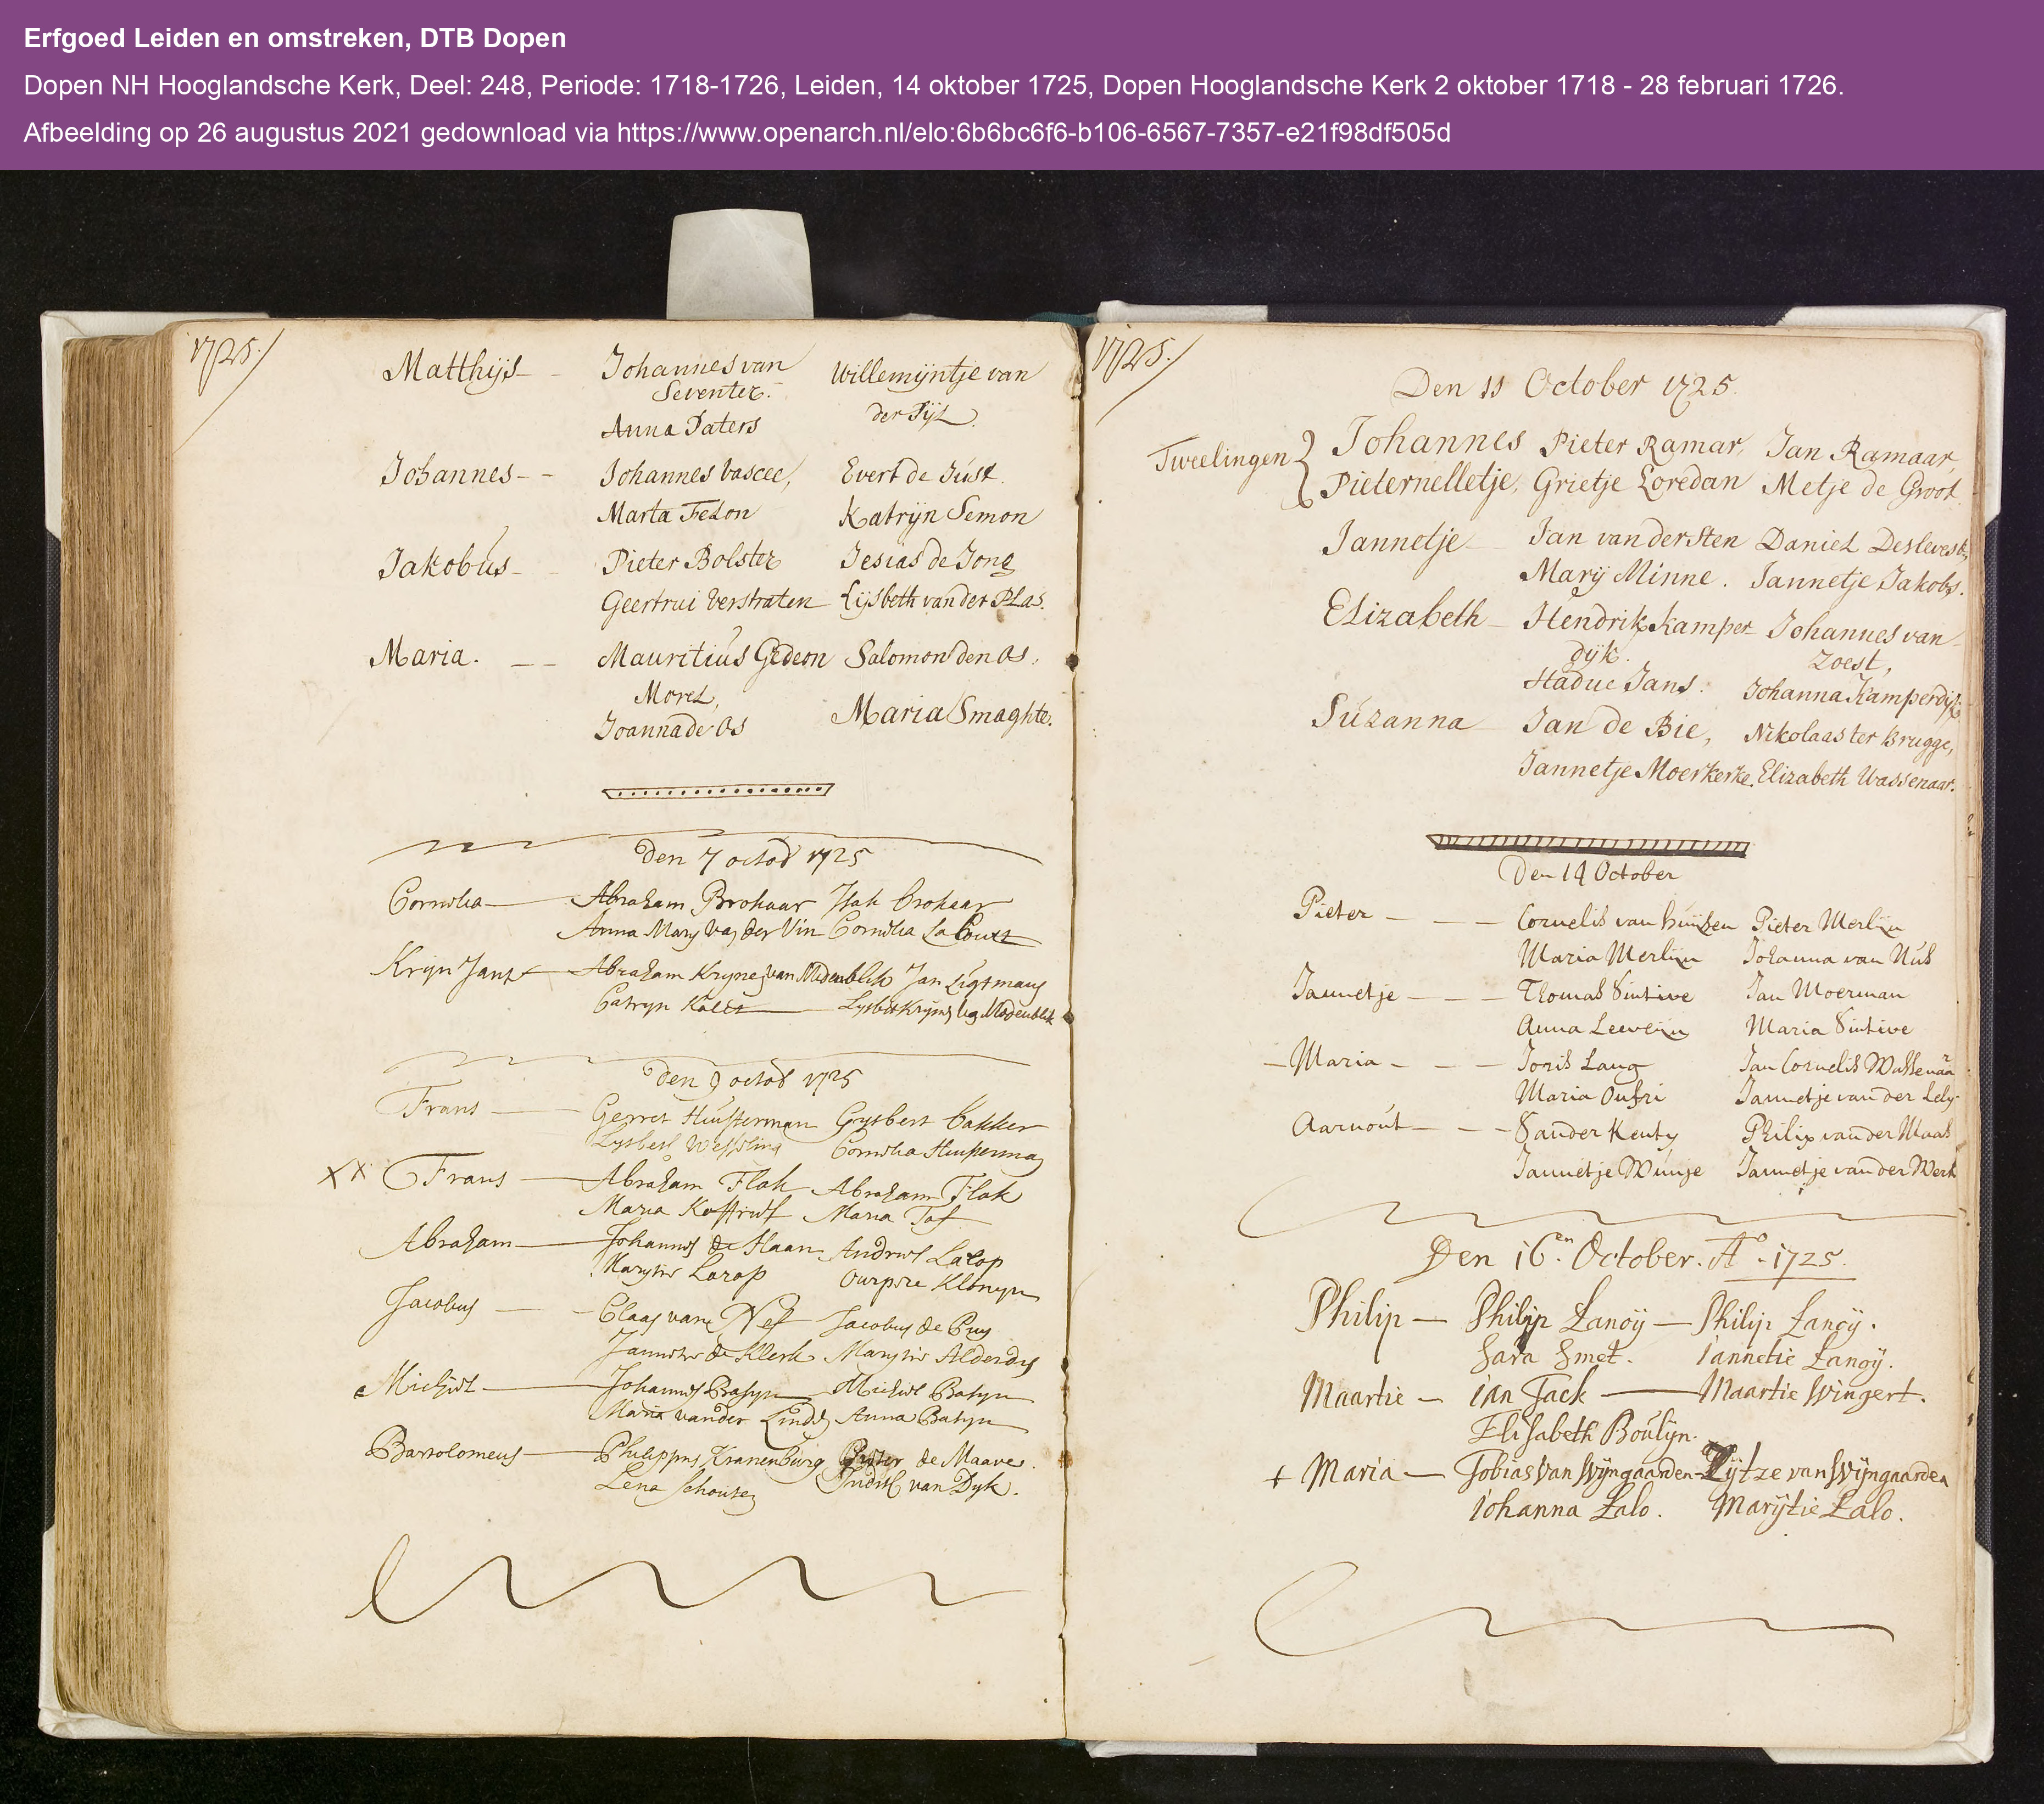 Erfgoed Leiden en omstreken, DTB Dopen
Dopen NH Hooglandsche Kerk, Deel: 248, Periode: 1718-1726, Leiden, 14 oktober 1725, Dopen Hooglandsche Kerk 2 oktober 1718 - 28 februari 1726.
Afbeelding op 26 augustus 2021 gedownload via https://www.openarch.nl/elo:6b6bc6f6-b106-6567-7357-e21f98df505d
1725.
Matthijs Johannes van Willemijntje van
Seventer. der Sijl
Anna Paters
Johannes Johannes Vascee, Evert de Just.
Marta Felon Katrijn Semon
Jakobus Pieter Bolster Jesias de Jong
Geertrui Verstraten Lijsbeth van der Plas.
Maria. Mauritius Gedeon Salomon den Os,
Morel,
Joanna de Os Maria Smaghte.
den 7 octob 1725
Cornelia Abraham Brohaar Isak Brohaar
Anna Mary van der Vin Cornelia La
Kryn Jansz Abraham Krynesz van Medenblik Jan Ligtmans
Catryn
den 9 octob 1725
Frans Gerret Huisterman Gysbert Bakker
Lysbeth Wesseling Cornelia
XX Frans Abraham Flak Abraham Flak
Maria Maria Tas
Abraham Johannes de Haan Andries Larop
Marytie Larop
Jacobus Claas van Nes Jacobus de Puy
Jannetie de Klerk Marytie
Michiel Johannes Basyn Michiel Basyn
Maria vander Linden Anna Basyn
Bartolomeus Philippus Kranenburg Pieter de Maare.
Lena Schouten Judith van Dyk.
1725.
Den 11 October 1725.
Tweelingen { Johannes Pieter Ramar, Jan Ramaar,
Pieternelletje, Grietje Loredan Metje de Groot.
Jannetje Jan van der Sten Daniel
Marij Minne. Jannetje Jakobs.
Elizabeth Hendrik Kamper Johannes van
dijk. Zoest,
Haduc Jans. Johanna Kamperdijk
Suzanna Jan de Bie, Nikolaas ter Brugge,
Jannetje Moerkerke. Elizabeth Wassenaar.
Den 14 October
Pieter Cornelis van Huijsen Pieter Merlijn
Maria Merlijn Johanna van Nus
Jannetje Thomas Sintive Jan Moerman
Anna Leeweijn Maria Sintive
Maria Joris Lang Jan Cornelis Wassenaar
Maria Oufri Jannetje van der Lely
Aarnout Sander Kenty Philip van der Maas
Jannetje Wunje Jannetje van der Werk
Den 16en. October. Ao. 1725.
Philip Philip Lanoÿ Philip Lanoÿ.
Sara Smet. Iannetie Lanoÿ.
Maartie Ian Jack Maartie Wingert.
Elisabeth Boulyn.
+ Maria Tobias Van Wijngaarden Zijtze van Wijngaarden
Iohanna Lalo. Marÿtie Lalo.